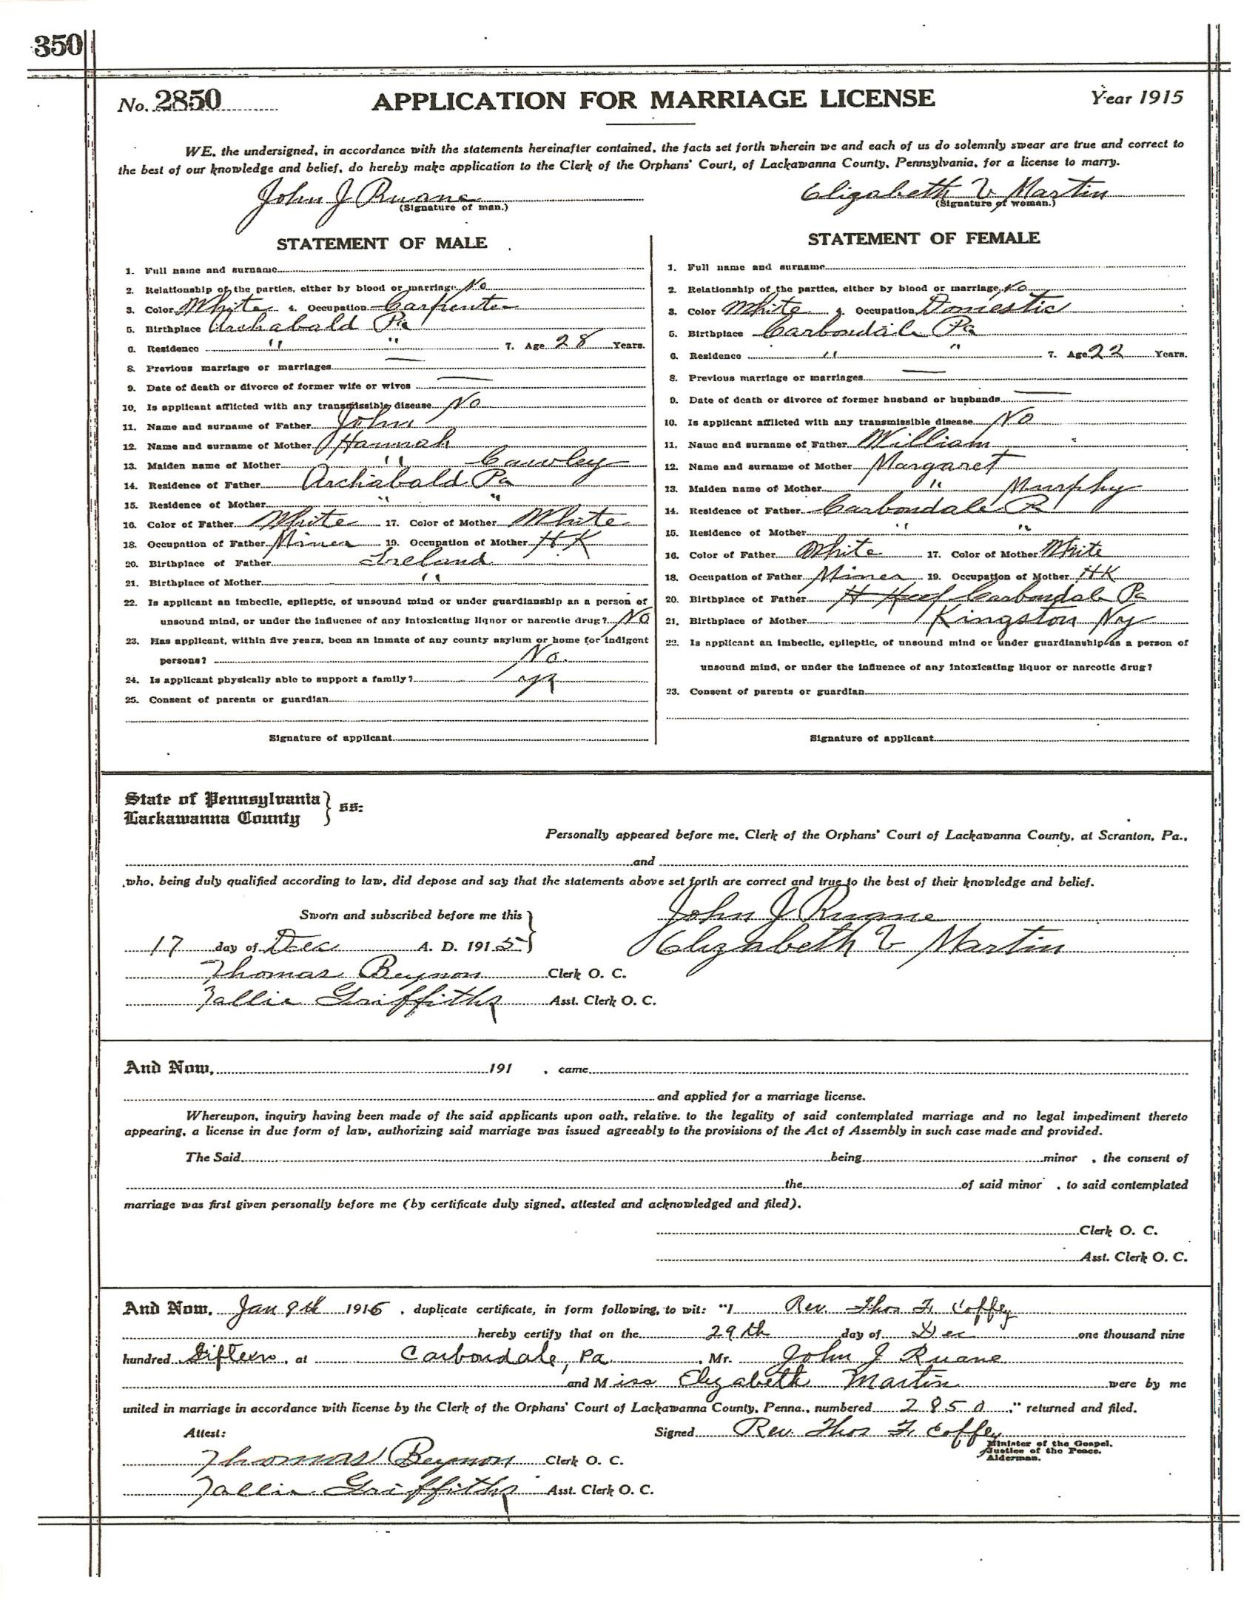 350
No. 2850 APPLICATION FOR MARRIAGE LICENSE Year 1915
WE, the undersigned, in accordance with the statements hereinafter contained, the facts set forth wherein we and each of us do solemnly swear are true and correct to
the best of our knowledge and belief, do hereby make application to the Clerk of the Orphans' Court, of Lackawanna County, Pennsylvania, for a license to marry.
John J Ruane Elizabeth V Martin
(Signature of man.) (Signature of woman.)
STATEMENT OF MALE
1. Full name and surname
2. Relationship of the parties, either by blood or marriage No
3. Color White 4. Occupation Carpenter
5. Birthplace Archabald Pa
6. Residence " " 7. Age 28 Years.
8. Previous marriage or marriages —
9. Date of death or divorce of former wife or wives —
10. Is applicant afflicted with any transmissible disease No
11. Name and surname of Father John
12. Name and surname of Mother Hannah
13. Maiden name of Mother " Cawley
14. Residence of Father Archabald Pa
15. Residence of Mother " "
16. Color of Father White 17. Color of Mother White
18. Occupation of Father Miner 19. Occupation of Mother H.K
20. Birthplace of Father Ireland
21. Birthplace of Mother "
22. Is applicant an imbecile, epileptic, of unsound mind or under guardianship as a person of
unsound mind, or under the influence of any intoxicating liquor or narcotic drug? No
23. Has applicant, within five years, been an inmate of any county asylum or home for indigent
persons? No.
24. Is applicant physically able to support a family?
25. Consent of parents or guardian
Signature of applicant
STATEMENT OF FEMALE
1. Full name and surname
2. Relationship of the parties, either by blood or marriage No
3. Color White 4. Occupation Domestic
5. Birthplace Carbondale Pa
6. Residence " " 7. Age 22 Years.
8. Previous marriage or marriages —
9. Date of death or divorce of former husband or husbands —
10. Is applicant afflicted with any transmissible disease No
11. Name and surname of Father William
12. Name and surname of Mother Margaret
13. Maiden name of Mother " Murphy
14. Residence of Father Carbondale
15. Residence of Mother " "
16. Color of Father White 17. Color of Mother White
18. Occupation of Father Miner 19. Occupation of Mother HK
20. Birthplace of Father Carbondale Pa
21. Birthplace of Mother Kingston Ny
22. Is applicant an imbecile, epileptic, of unsound mind or under guardianship as a person of
unsound mind, or under the influence of any intoxicating liquor or narcotic drug?
23. Consent of parents or guardian
Signature of applicant
State of Pennsylvania } ss:
Lackawanna County
Personally appeared before me, Clerk of the Orphans' Court of Lackawanna County, at Scranton, Pa.,
and
who, being duly qualified according to law, did depose and say that the statements above set forth are correct and true to the best of their knowledge and belief.
Sworn and subscribed before me this } John J Ruane
17 day of Dec A. D. 1915 Elizabeth V Martin
Thomas Beynon Clerk O. C.
Tallie Griffiths Asst. Clerk O. C.
And Now, 191 , came
and applied for a marriage license.
Whereupon, inquiry having been made of the said applicants upon oath, relative to the legality of said contemplated marriage and no legal impediment thereto
appearing, a license in due form of law, authorizing said marriage was issued agreeably to the provisions of the Act of Assembly in such case made and provided.
The Said being minor , the consent of
the of said minor , to said contemplated
marriage was first given personally before me (by certificate duly signed, attested and acknowledged and filed).
Clerk O. C.
Asst. Clerk O. C.
And Now, Jan 8th 1916 , duplicate certificate, in form following, to wit: "I Rev. Thos F. Coffey
hereby certify that on the 29th day of Dec one thousand nine
hundred fifteen , at Carbondale, Pa , Mr. John J Ruane
and Miss Elizabeth Martin were by me
united in marriage in accordance with license by the Clerk of the Orphans' Court of Lackawanna County, Penna., numbered 2850 ," returned and filed.
Attest: Signed Rev. Thos F. Coffey
Minister of the Gospel.
Justice of the Peace.
Alderman.
Thomas Beynon Clerk O. C.
Tallie Griffiths Asst. Clerk O. C.